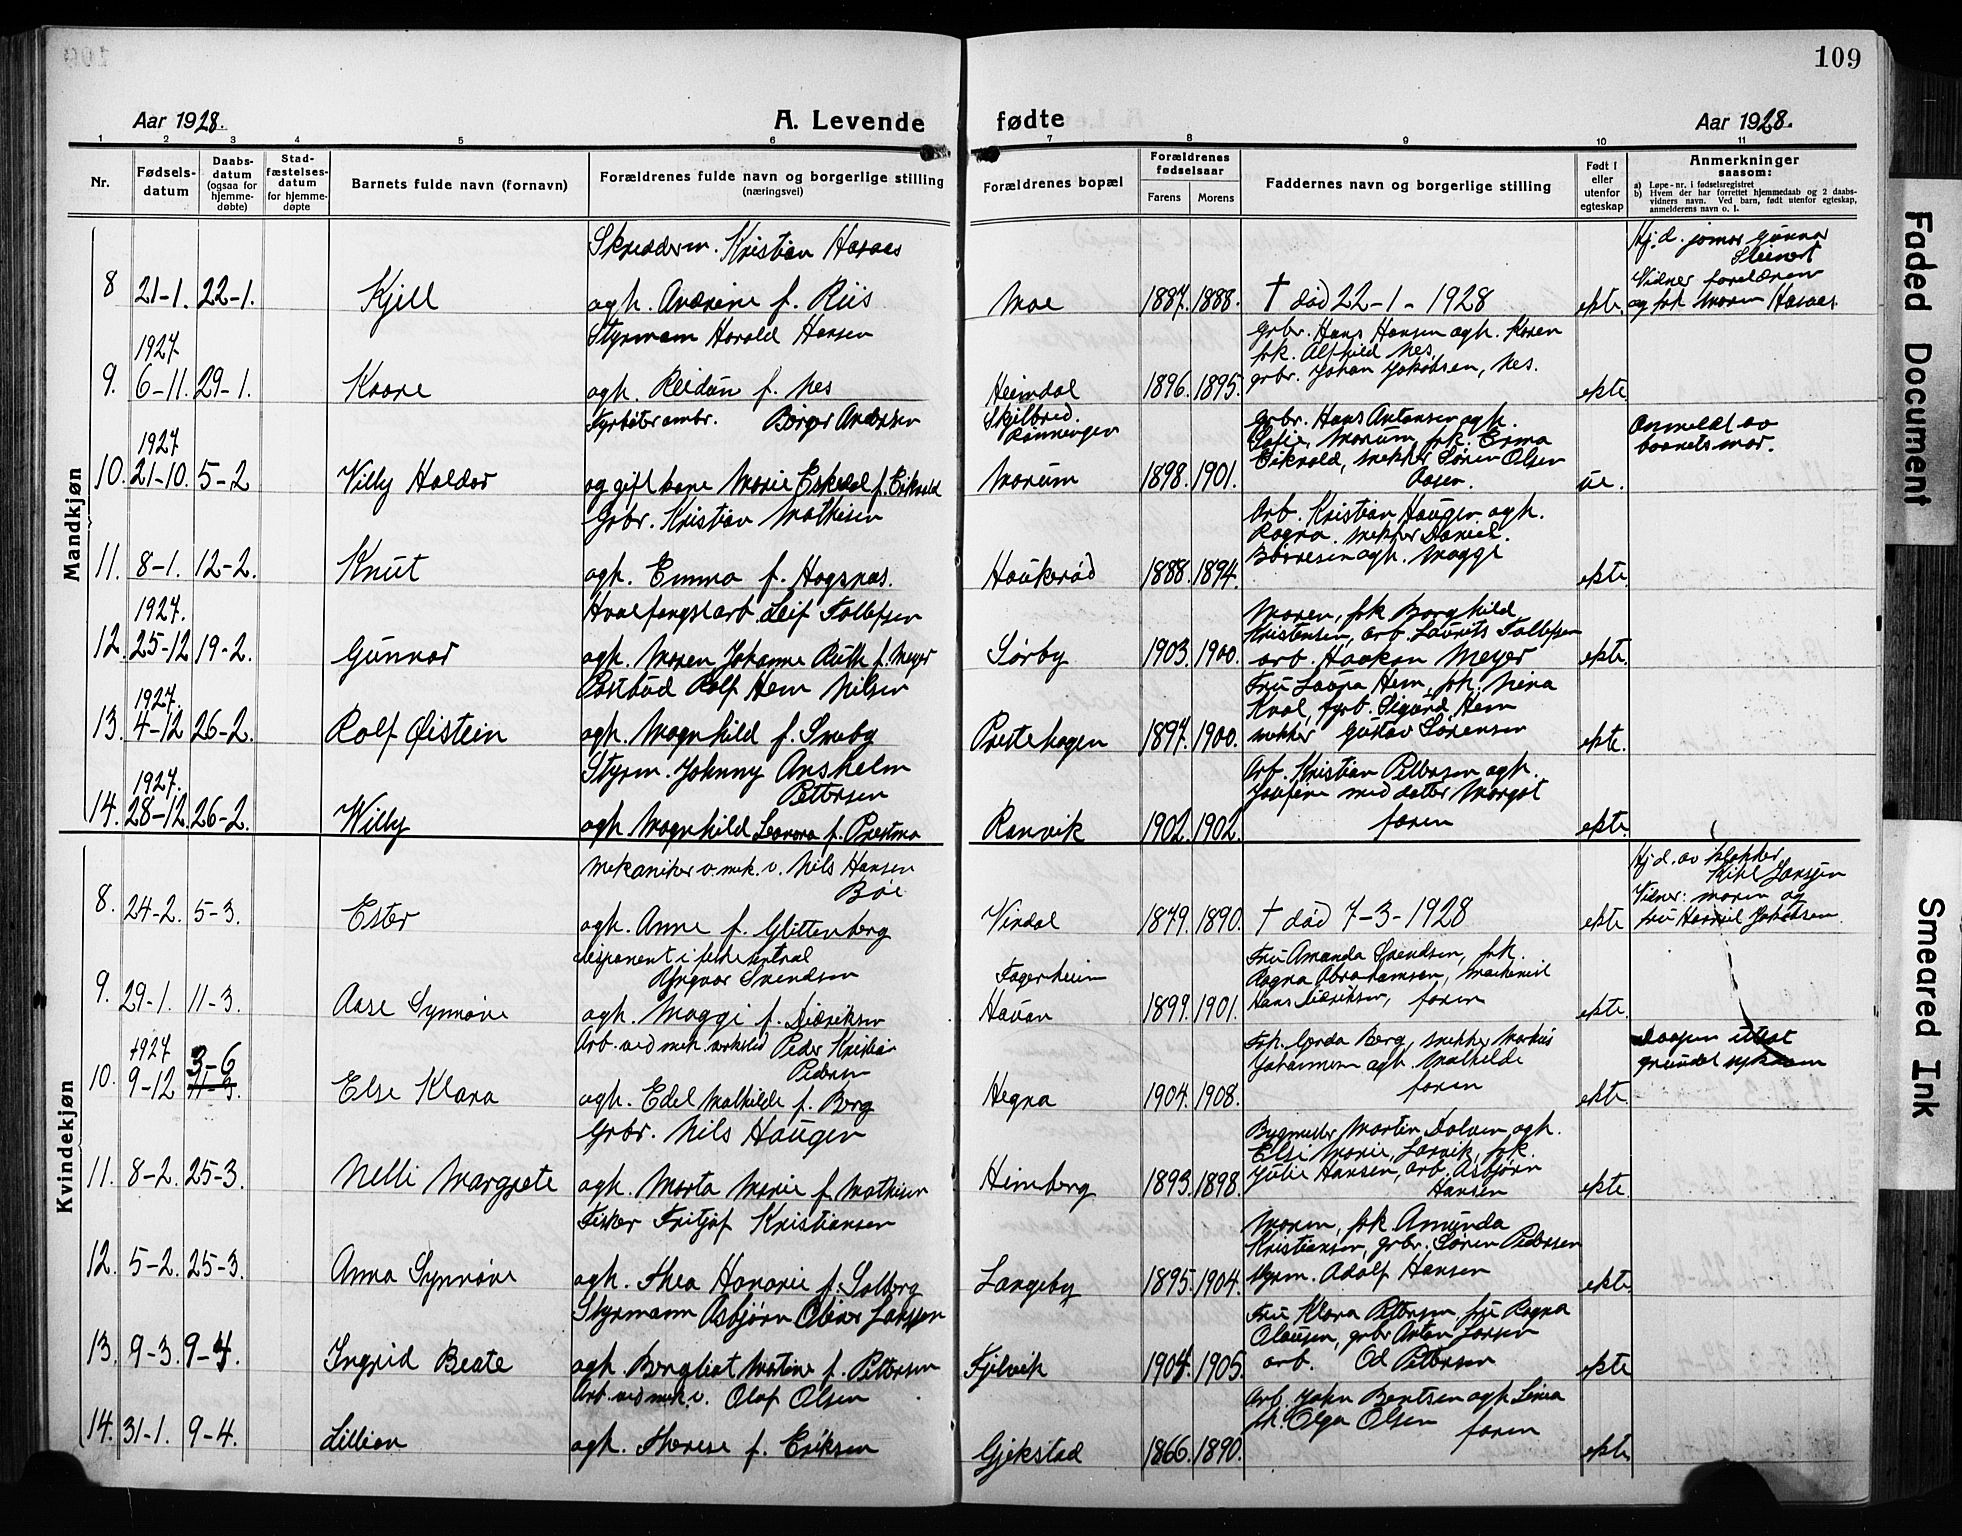 109
Aar 1928.
A. Levende
fødte
Aar 1928.
1 2 3 4 5 6 7 8 9 10 11
Nr.
Fødsels-
datum
Daabs-
datum
(ogsaa for
hjemme-
døbte)
Stad-
fæstelses-
datum
for hjemme-
døpte
Barnets fulde navn (fornavn)
Forældrenes fulde navn og borgerlige stilling
(næringsvei)
Forældrenes bopæl
Forældrenes
fødselsaar
Farens
Morens
Faddernes navn og borgerlige stilling
Født i
eller
utenfor
egteskap
Anmerkninger
saasom:
a) Løpe-nr. i fødselsregistret
b) Hvem der har forrettet hjemmedaab og 2 daabs-
vidners navn. Ved barn, født utenfor egteskap,
anmelderens navn o. l.
Mandkjøn
Skræderm. Kristian Hasaas
8 21-1. 22-1. Kjell
agh. f. Riis
Moe
1887. 1888.
† død 22-1-1928
ekte.
Hj.d. jomor Gunnar
Steinert
Vidner forelæren
og frk Maren Hasaas
1927
9. 6-11. 29-1. Kaare
Styrmann Harald Hansen
agh. Reidun f. Nes
Heimdal
1896. 1895.
Grbr. Hans Hansen agh. Karen
frk. Alfhild Nes,
grbr. Johan Jakobsen, Nes.
ekte.
1927
10. 21-10. 5-2 Willy Haldor
Fyrbøterambr. Birger Andersen
og gift kone Marie Eskedal f. Eikvald
Skjilbred.
Rønningen
Marum
1898. 1901.
Grbr. Hans Antonsen agh.
Sofie, Marum, frk. Erma
Eikvald, snekker Søren Olsen
Aasen.
ue.
Anmeldt av
barnets mor.
11. 8-1. 12-2. Knut
Grbr. Kristian Mathisen
agh. Emma f. Hogsnes.
Haukerød
1888. 1894.
Arb. Kristian Haugen agh.
Ragna. snekker Daniel
Børresen agh. Maggi
ekte.
1927.
12. 25-12 19-2. Gunnar
Hvalfangstarb. Leif Tollefsen
agh. Maren Johanne Ruth f. Meyer
Sørby
1903. 1900.
Moren, frk Borghild
Kristensen, arb. Laurits Tollefsen
arb. Haakon Meyer
ekte.
1927.
13. 4-12 26-2. Rolf Øistein
Postbud Rolf Hem Nilsen
agh. Magnhild f. Sneby
Prestehagen
1897. 1900.
Fru Laura Hem, frk. Nina
Kval, fyrb. Sigurd Hem
snekker Gustav Sørensen
ekte.
1927.
14. 28-12. 26-2. Willy
Styrm. Johnny Anshelm
Pettersen
agh. Magnhild Leonora f. Prestmo
Ranvik
1902. 1902.
Arb. Kristian Pettersen agh.
Josefine med datter Margot
faren
ekte.
Kvindekjøn
8. 24-2. 5-3. Ester
Mekaniker v. mek. v. Nils Hansen
Bøe
agh. Anne f. Glittenberg
Vindal
1879. 1890.
† død 7-3-1928
ekte
Hj.d. av klokker
Kihl Jansjen
Vidner: moren og
fru Jakobsen
9. 29-1. 11-3. Aase Synnøve
disponent i
Yngvar Svendsen
agh. Maggi f. Didriksen
Fagerheim
Havan
1899. 1901.
Fru Amanda Svendsen, frk.
Ragna Abrahamsen, maskinist
Hans Didriksen, faren
ekte.
1927 3-6
10. 9-12 11-3. Else Klara
Arb. ved mek. verksted Peder Kristian
Pedersen
agh. Edel Mathilde f. Berg
Hegna
1904. 1908.
Frk. Gerda Berg, snekker Markus
Johannesen agh. Mathilde
faren
ekte.
Daapen utsat
grundet sykdom
11. 8-2. 25-3. Nelli Margrete
Grbr. Nils Haugen
agh. Marta Marie f. Mathisen
Himberg
1893. 1898.
Bygmester Martin Dalven agh.
Elsi Marie, Larvik, frk.
Julie Hansen, arb. Asbjørn
Hansen
ekte.
12. 5-2. 25-3. Anna Synnøve
Fisker Fritjof Kristiansen
agh. Thea Honorie f. Solberg
Langeby
1895. 1904.
Moren, frk. Amunda
Kristiansen, grbr. Søren Pedersen
styrm. Adolf Hansen
ekte.
13. 9-3. 9-4. Ingrid Beate
Styrmann Asbjørn Oliver Janssen
agh. Bergliot Martine f. Pettersen
Fjelvik
1904. 1905.
Fru Klara Pettersen fru Ragna
Olausen, grbr Anton Larsen
arb. Od Pettersen
ekte.
14. 31-1. 9-4. Lillian
Arb. ved mek. v. Olaf Olsen
agh. Therese f. Eriksen
Gjekstad
1866. 1890.
Arb. John Bentsen agh. Lina
frk. Olga Olsen faren
ekte.
Faded Document
Smeared Ink